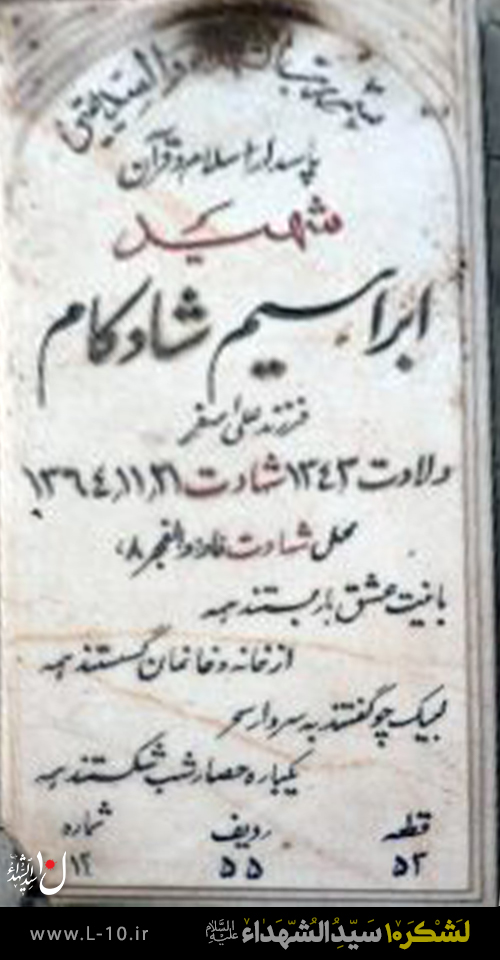 پاسدار اسلام و قرآن
شهید
ابراهیم شادکام
فرزند علی اصغر
ولادت ۱۳۴۳ شهادت ۱۳۶۴،۱۱،۲۱
محل شهادت فاو والفجر ۸
با نیت عشق بار بستند همه
از خانه و خانمان گسستند همه
لبیک چو گفتند به سردار سحر
یکباره حصار شب شکستند همه
قطعه ردیف شماره
۵۳ ۵۵ ۱۲
ن سیدالشهداء
www.L-10.ir
لَشکَرَ۱۰ سَیِّدِالشُّهَداء عَلَیهِ السَّلام